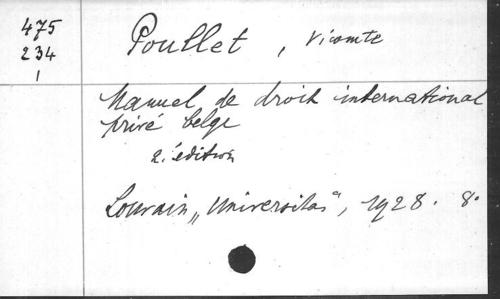 475
234
1
Poullet, Vicomte
Manuel de droit international
privé belge
2.e édition
Louvain, „Universitas", 1928. 8°